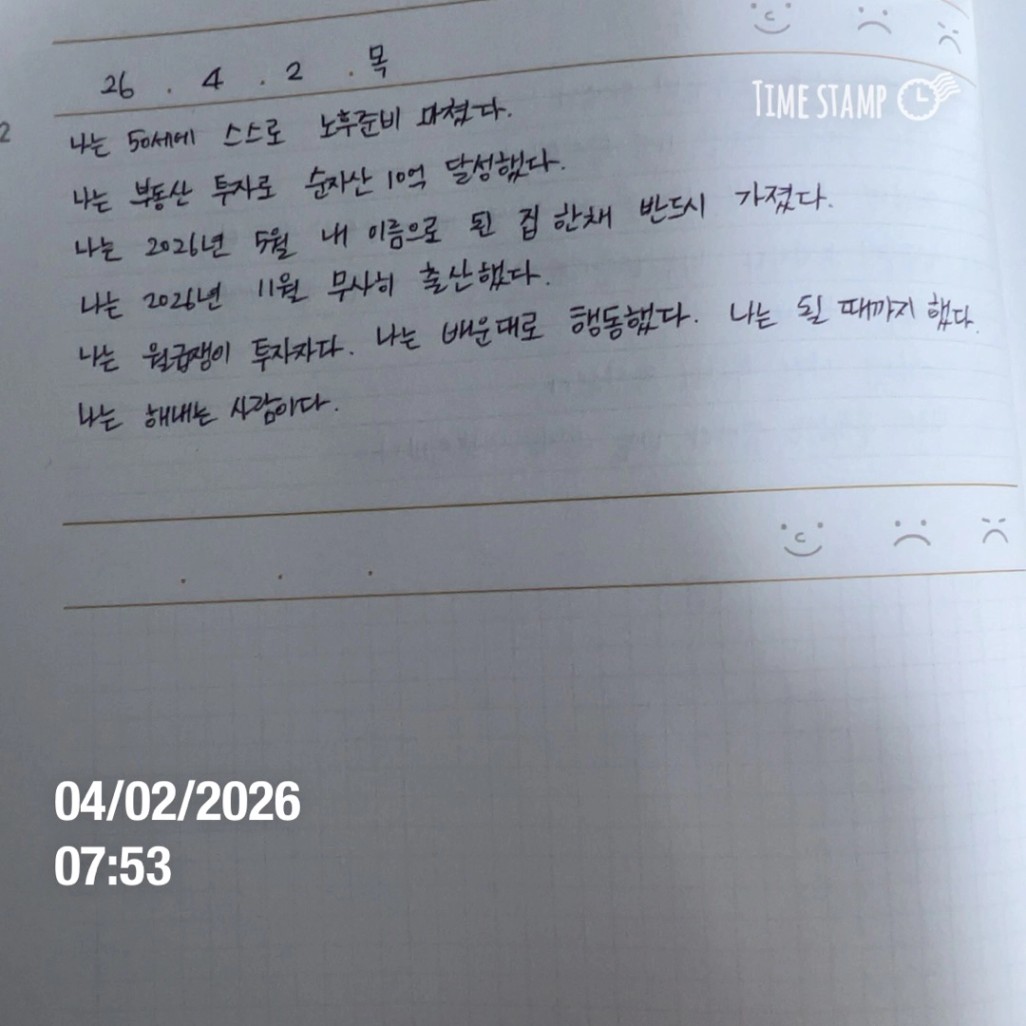 26 . 4 . 2 . 목
TIME STAMP
2
나는 50세에 스스로 노후준비 마쳤다.
나는 부동산 투자로 순자산 10억 달성했다.
나는 2026년 5월 내 이름으로 된 집 한채 반드시 가졌다.
나는 2026년 11월 무사히 출산했다.
나는 월급쟁이 투자자다. 나는 배운대로 행동했다. 나는 될 때까지 했다.
나는 해내는 사람이다.
04/02/2026
07:53